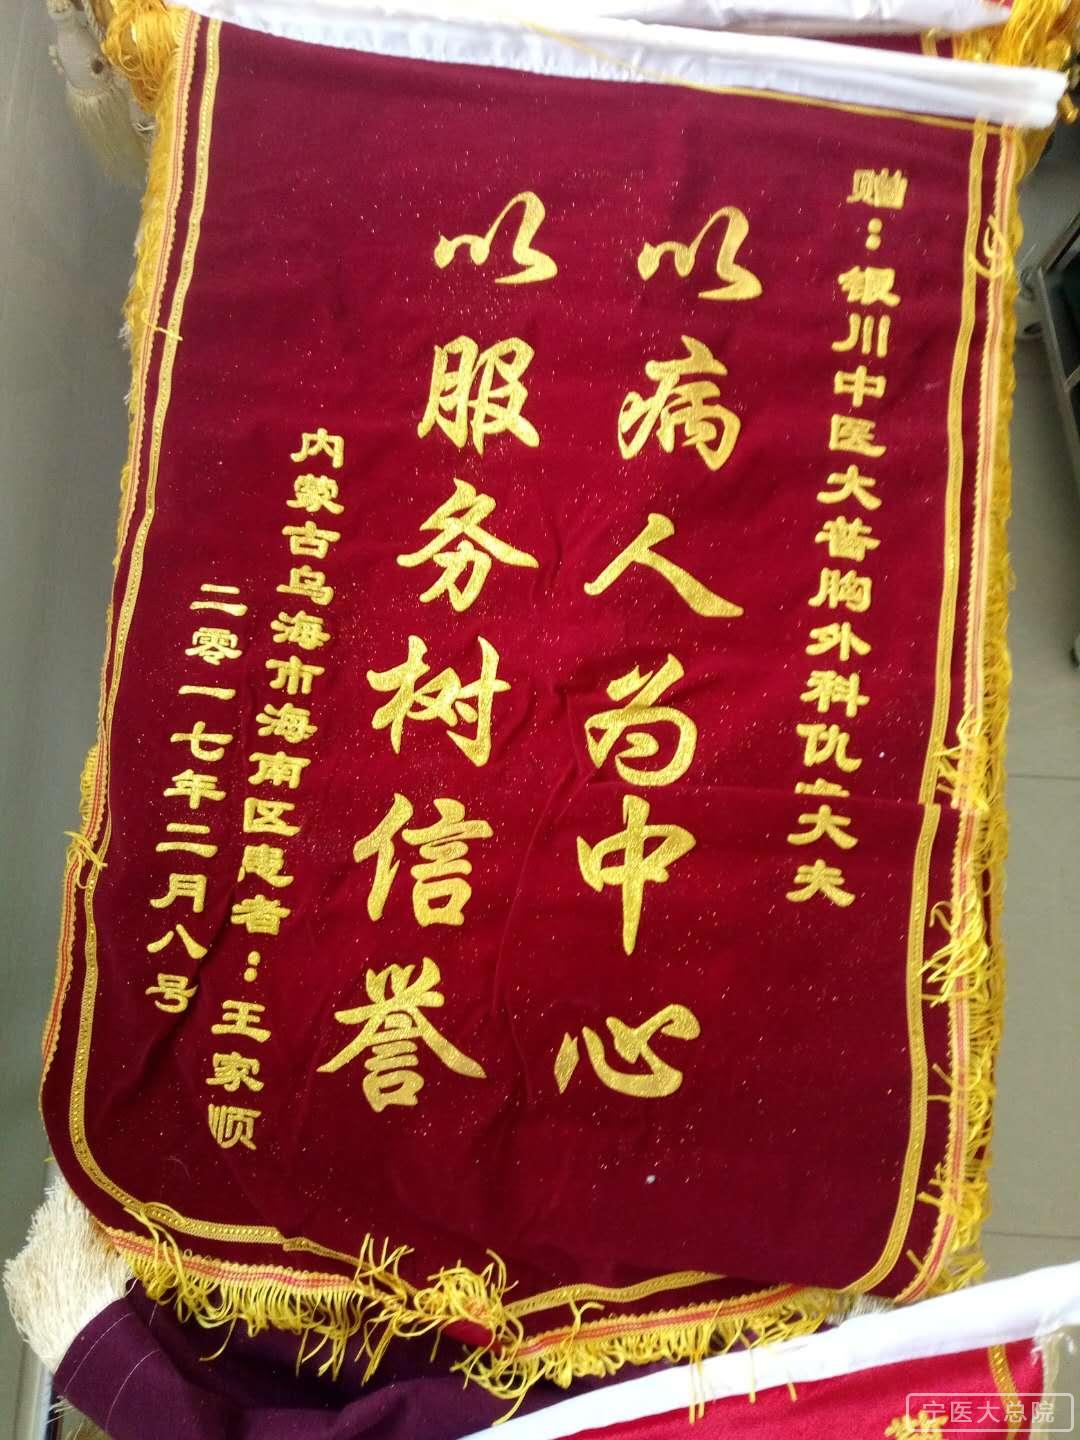 赠：银川中医大普胸外科仇立大夫
以病人为中心
以服务树信誉
内蒙古乌海市海南区患者：王家顺
二零一七年二月八号
宁医大总院